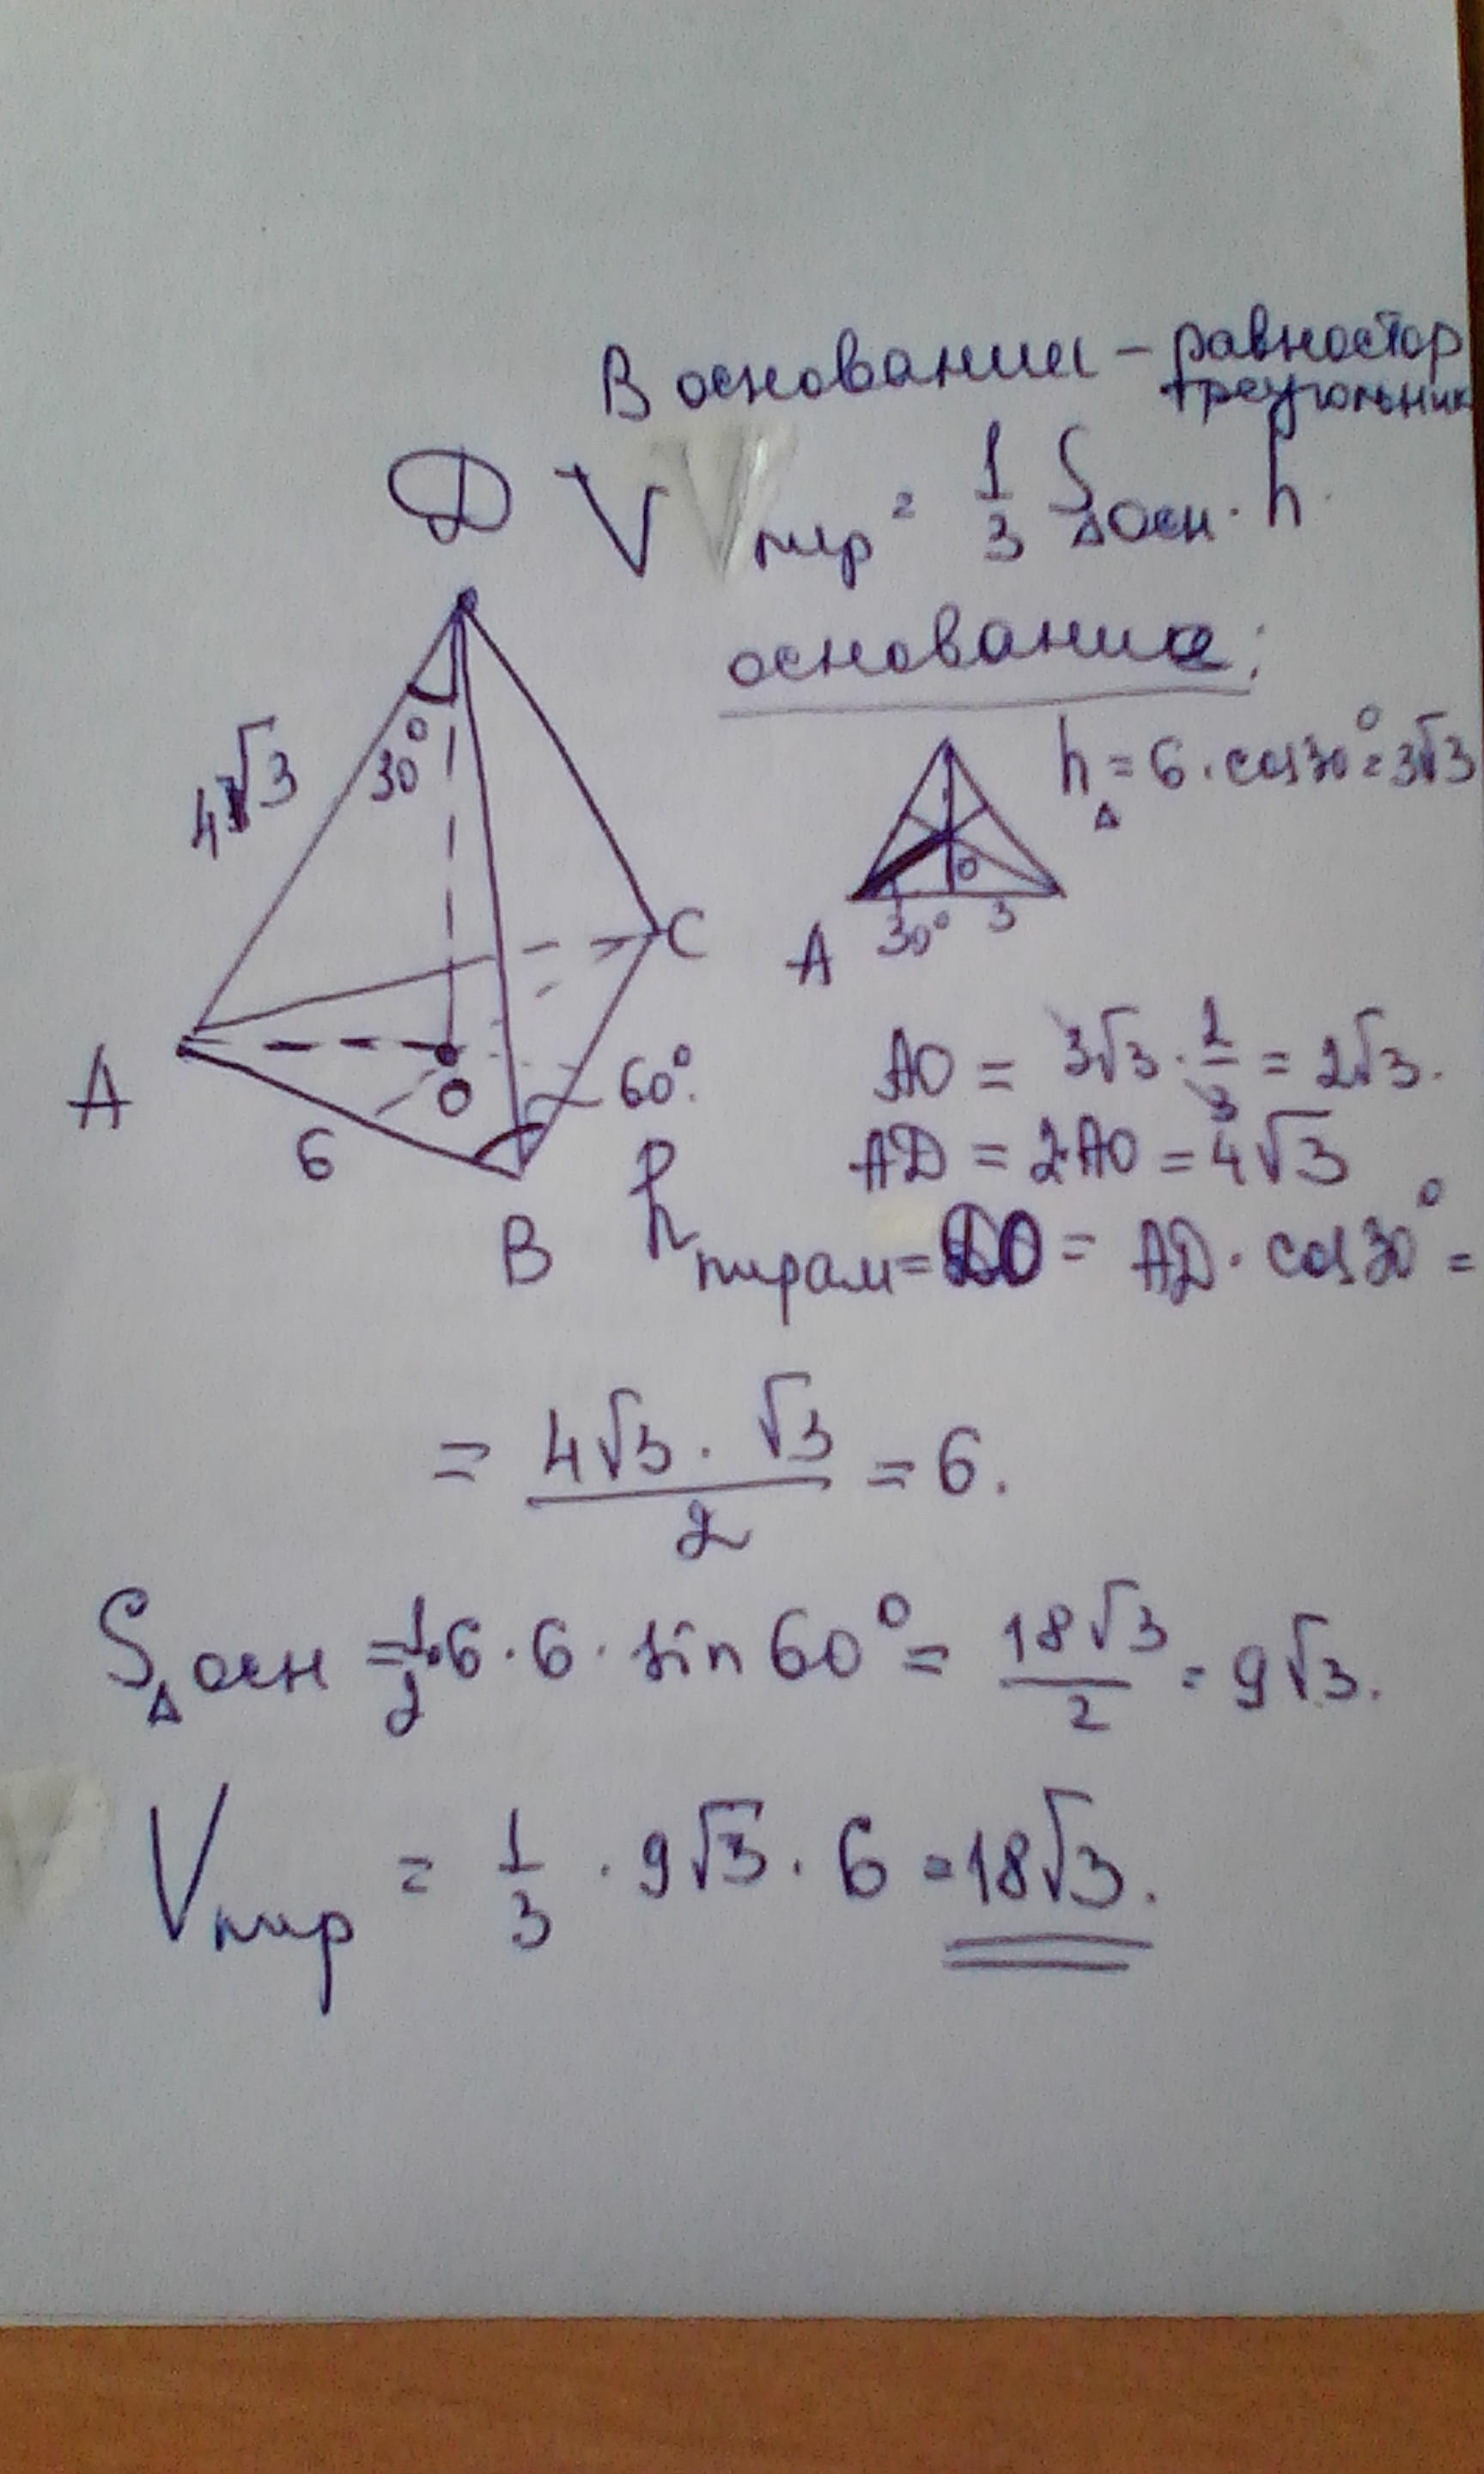 В основании - равностор
треугольник
D V Vпир = 1/3 S△осн · h
основание:
4√3 30° h△ = 6 · cos30° = 3√3
C O
A 30° 3
A O 60° AO = 3√3 · 2/3 = 2√3.
6 AD = 2·AO = 4√3
B hпирам = DO = AD · cos30° =
= 4√3 · √3 / 2 = 6.
S△осн = 1/2 · 6 · 6 · sin 60° = 18√3/2 = 9√3.
Vпир = 1/3 · 9√3 · 6 = 18√3.